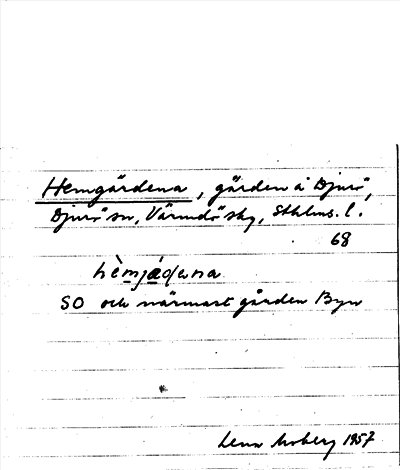 Hemgärdena, gärden å Djurö,
Djurö sn, Värmdö skg, Sthlms. l.
68
hèmjäḍeṇa
SO och närmast gården Byn
Lena Moberg 1957